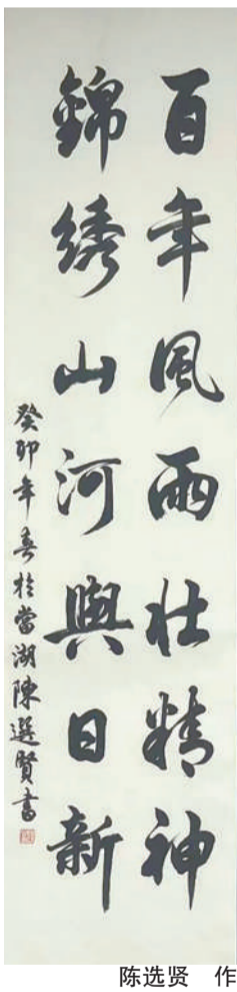 百年風雨壮精神
錦绣山河與日新
癸卯年春於當湖陳選賢書
陈选贤 作